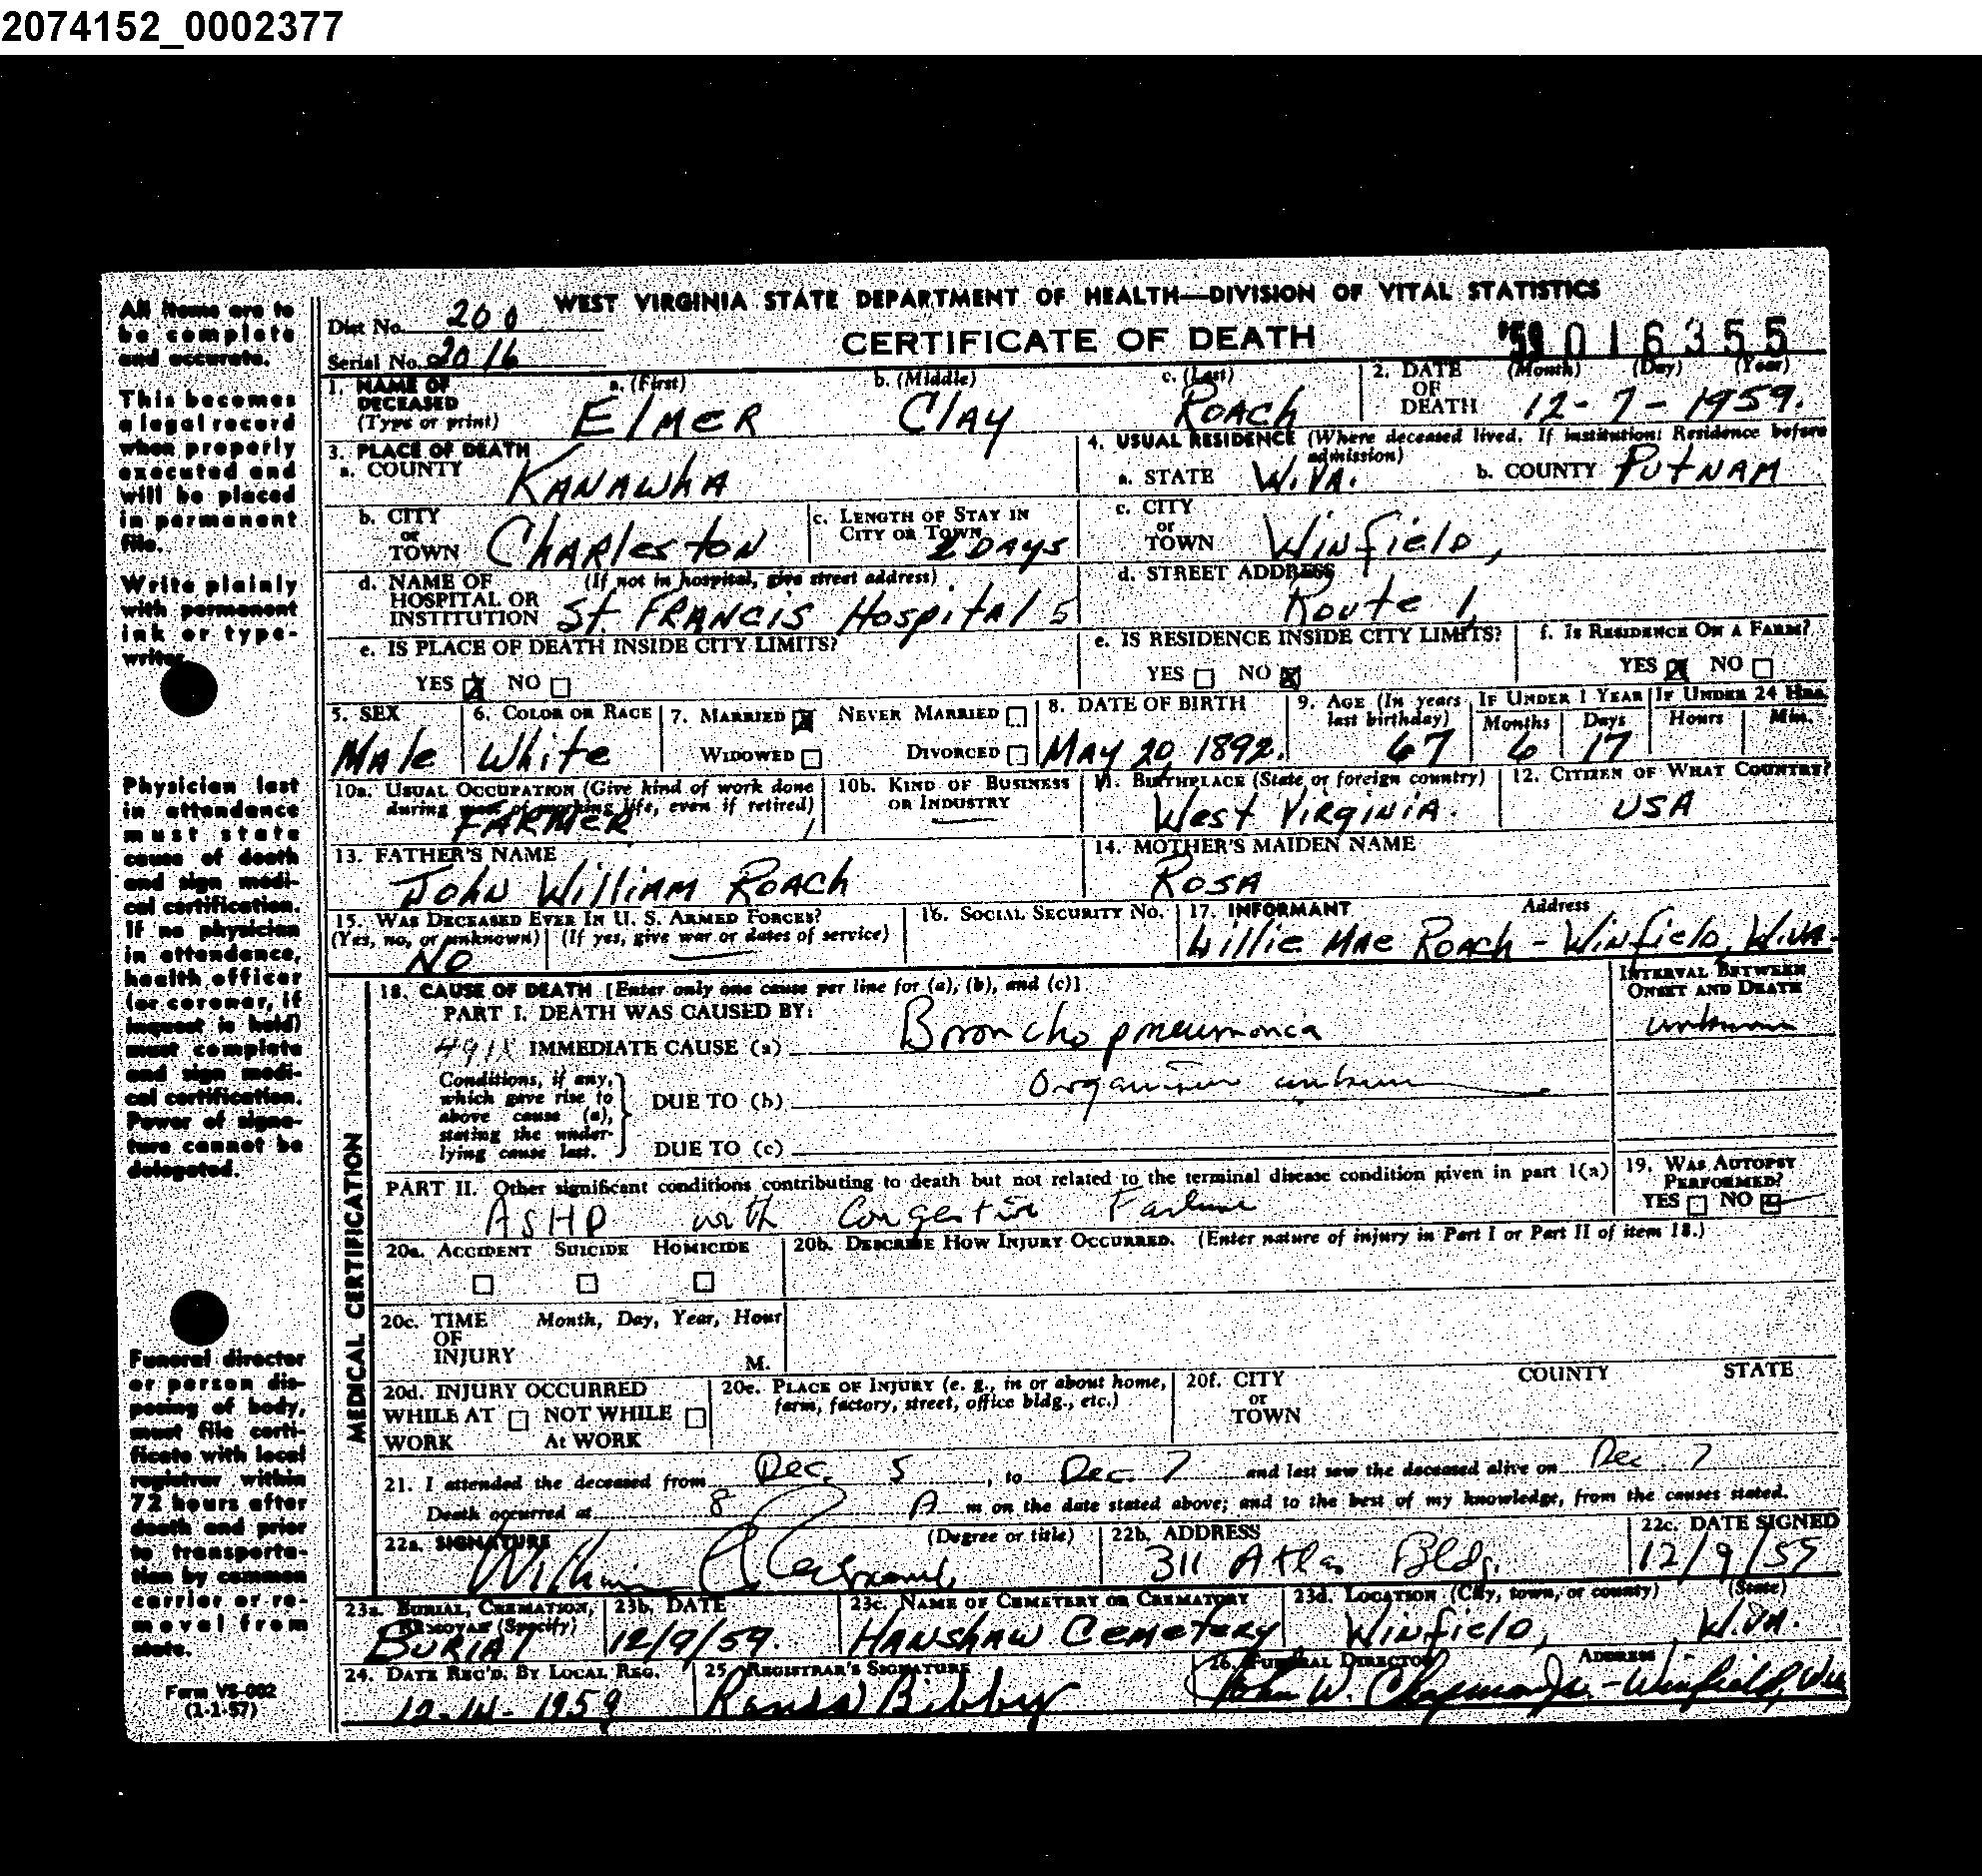 2074152_0002377
WEST VIRGINIA STATE DEPARTMENT OF HEALTH—DIVISION OF VITAL STATISTICS
Dist No. 200
CERTIFICATE OF DEATH
'59 016355
Serial No. 2016
1. NAME OF DECEASED (Type or print)
a. (First) b. (Middle) c. (Last)
ElMER Clay ROACh
2. DATE OF DEATH (Month) (Day) (Year)
12-7-1959.
3. PLACE OF DEATH
a. COUNTY KANAWhA
4. USUAL RESIDENCE (Where deceased lived. If institution: Residence before admission)
a. STATE W.VA. b. COUNTY PUTNAM
b. CITY or TOWN CHARleston
c. LENGTH OF STAY IN CITY OR TOWN 2 DAYS
c. CITY or TOWN WiNfielD,
d. NAME OF HOSPITAL OR INSTITUTION (If not in hospital, give street address)
St. FRANCIS Hospital 5
d. STREET ADDRESS
Route 1,
e. IS PLACE OF DEATH INSIDE CITY LIMITS?
YES X NO
e. IS RESIDENCE INSIDE CITY LIMITS?
YES NO X
f. IS RESIDENCE ON A FARM?
YES X NO
5. SEX
Male
6. COLOR OR RACE
White
7. MARRIED X NEVER MARRIED
WIDOWED DIVORCED
8. DATE OF BIRTH
MAY 20, 1892.
9. AGE (In years last birthday)
67
IF UNDER 1 YEAR
Months 6 Days 17
IF UNDER 24 HRS.
Hours Min.
10a. USUAL OCCUPATION (Give kind of work done during most of working life, even if retired)
FARMER
10b. KIND OF BUSINESS OR INDUSTRY
11. BIRTHPLACE (State or foreign country)
West VIRgINIA.
12. CITIZEN OF WHAT COUNTRY?
USA
13. FATHER'S NAME
JOHN WilliAM ROACh
14. MOTHER'S MAIDEN NAME
ROSA
15. WAS DECEASED EVER IN U. S. ARMED FORCES?
(Yes, no, or unknown) (If yes, give war or dates of service)
NO
16. SOCIAL SECURITY NO.
17. INFORMANT Address
Willie MAe ROACh - WiNfielD, W.VA.
18. CAUSE OF DEATH [Enter only one cause per line for (a), (b), and (c)]
INTERVAL BETWEEN ONSET AND DEATH
PART I. DEATH WAS CAUSED BY:
491X IMMEDIATE CAUSE (a) Bronchopneumonia unknown
Conditions, if any, which gave rise to above cause (a), stating the underlying cause last.
DUE TO (b) Organism unknown
DUE TO (c)
PART II. Other significant conditions contributing to death but not related to the terminal disease condition given in part I(a)
ASHD with Congestive Failure
19. WAS AUTOPSY PERFORMED?
YES NO
20a. ACCIDENT SUICIDE HOMICIDE
20b. DESCRIBE HOW INJURY OCCURRED. (Enter nature of injury in Part I or Part II of item 18.)
20c. TIME OF INJURY Month, Day, Year, Hour
M.
20d. INJURY OCCURRED
WHILE AT WORK NOT WHILE At WORK
20e. PLACE OF INJURY (e. g., in or about home, farm, factory, street, office bldg., etc.)
20f. CITY or TOWN COUNTY STATE
21. I attended the deceased from Dec. 5, to Dec. 7 and last saw the deceased alive on Dec. 7
Death occurred at 8 A m on the date stated above; and to the best of my knowledge, from the causes stated.
22a. SIGNATURE (Degree or title)
William
22b. ADDRESS
311 Atlas Bldg.
22c. DATE SIGNED
12/9/59
23a. BURIAL, CREMATION, REMOVAL (Specify)
BURIAl
23b. DATE
12/9/59.
23c. NAME OF CEMETERY OR CREMATORY
HANSHAW CEMETERY
23d. LOCATION (City, town, or county) (State)
WINfielD, W.VA.
24. DATE REC'D. BY LOCAL REG.
12-14-1959
25. REGISTRAR'S SIGNATURE
Bibby
26. FUNERAL DIRECTOR ADDRESS
John W. Chapman Jr. - Winfield, W.Va
MEDICAL CERTIFICATION
All items are to
be complete
and accurate.
This becomes
a legal record
when properly
executed and
will be placed
in permanent
file.
Write plainly
with permanent
ink or type-
writer.
Physician last
in attendance
must state
cause of death
and sign medi-
cal certification.
If no physician
in attendance,
health officer
(or coroner, if
inquest is held)
must complete
and sign medi-
cal certification.
Power of signa-
ture cannot be
delegated.
Funeral director
or person dis-
posing of body,
must file certi-
ficate with local
registrar within
72 hours after
death and prior
to transporta-
tion by common
carrier or re-
moval from
state.
Form VS-002
(1-1-57)